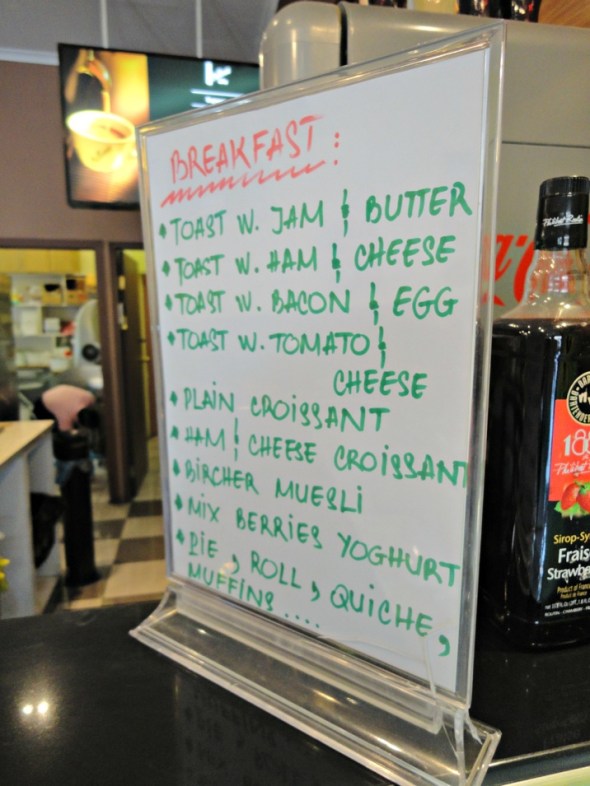 BREAKFAST :
• TOAST W. JAM & BUTTER
• TOAST W. HAM & CHEESE
• TOAST W. BACON & EGG
• TOAST W. TOMATO &
CHEESE
• PLAIN CROISSANT
• HAM & CHEESE CROISSANT
• BIRCHER MUESLI
• MIX BERRIES YOGHURT
• PIE, ROLL, QUICHE,
MUFFINS ....
Sirop-Sy
Frais
Strawbe
Product of France